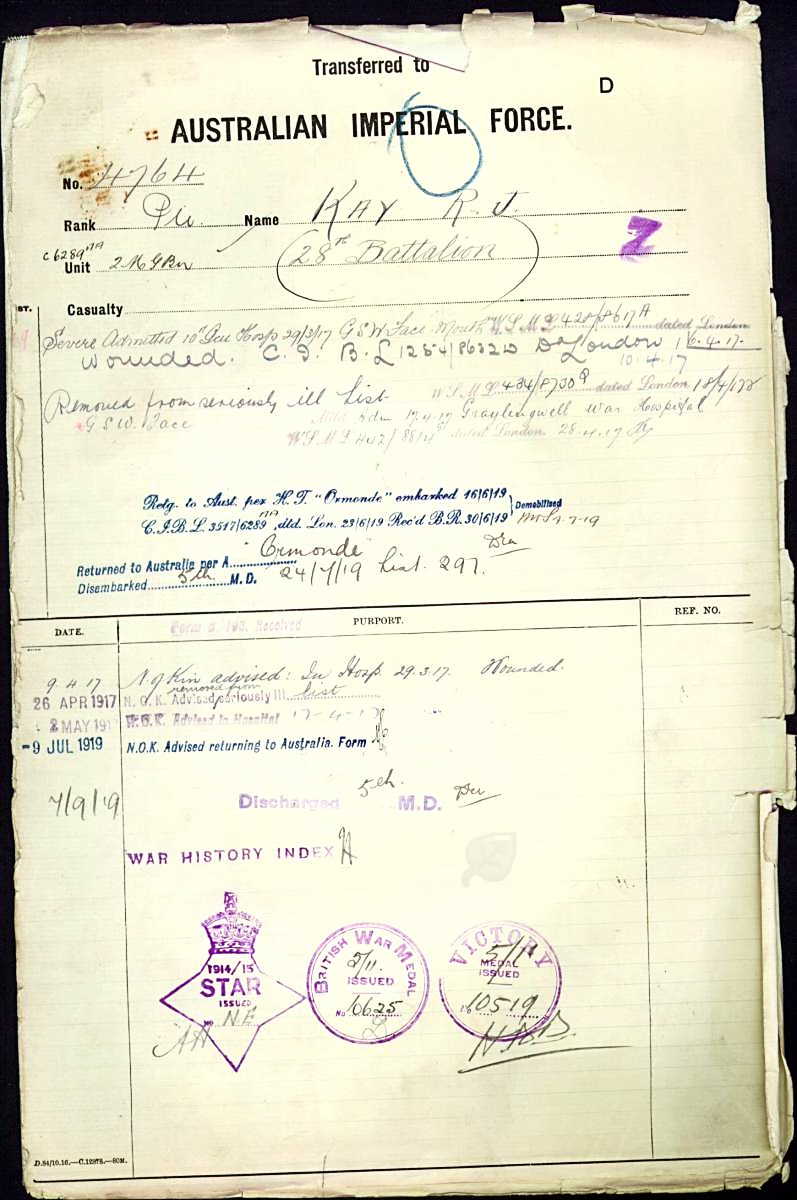 Transferred to
D
AUSTRALIAN IMPERIAL FORCE.
No. 4764
Rank Pte. Name KAY R. J.
C 6289
Unit 2 M G Bn (28th Battalion)
Z
ST.
Casualty
Severe Admitted 10th Gen Hosp 29/3/17 G S W Face Mouth W.S.M.L 420/8617 A dated London
Wounded. C. I. B. L 1254/8632 London 6.4.17.
10.4.17
Removed from seriously ill list W.S.M.L 434/8730 dated London 18/4/17
G.S.W. Face Mild Adm 17.4.17 Graylingwell War Hospital
W.S.M.L 442/8814 dated London 28.4.17
Retg. to Aust. per H.T. "Ormonde" embarked 16/6/19 } Demobilised
C.I.B.L. 3517/6289, dtd. Lon. 23/6/19 Rec'd B.R. 30/6/19 1-7-19
Returned to Australia per A "Ormonde"
Disembarked 5th M.D. 24/7/19 List 297.
DATE. PURPORT. REF. NO.
Form B. 103. Received
9.4.17 N of Kin advised: In Hosp. 29.3.17. Wounded.
removed from
26 APR 1917 N.O.K. Advised seriously ill list
2 MAY 191 N.O.K. Advised in Hospital 17-4-17
-9 JUL 1919 N.O.K. Advised returning to Australia. Form
7/9/19 Discharged 5th M.D.
WAR HISTORY INDEX
1914/15
STAR
ISSUED
No N.E.
AH
BRITISH WAR MEDAL
5/11
ISSUED
No 6625
VICTORY
5/11
MEDAL
ISSUED
No 10519
D.84/10.16.—C.12878.—80M.